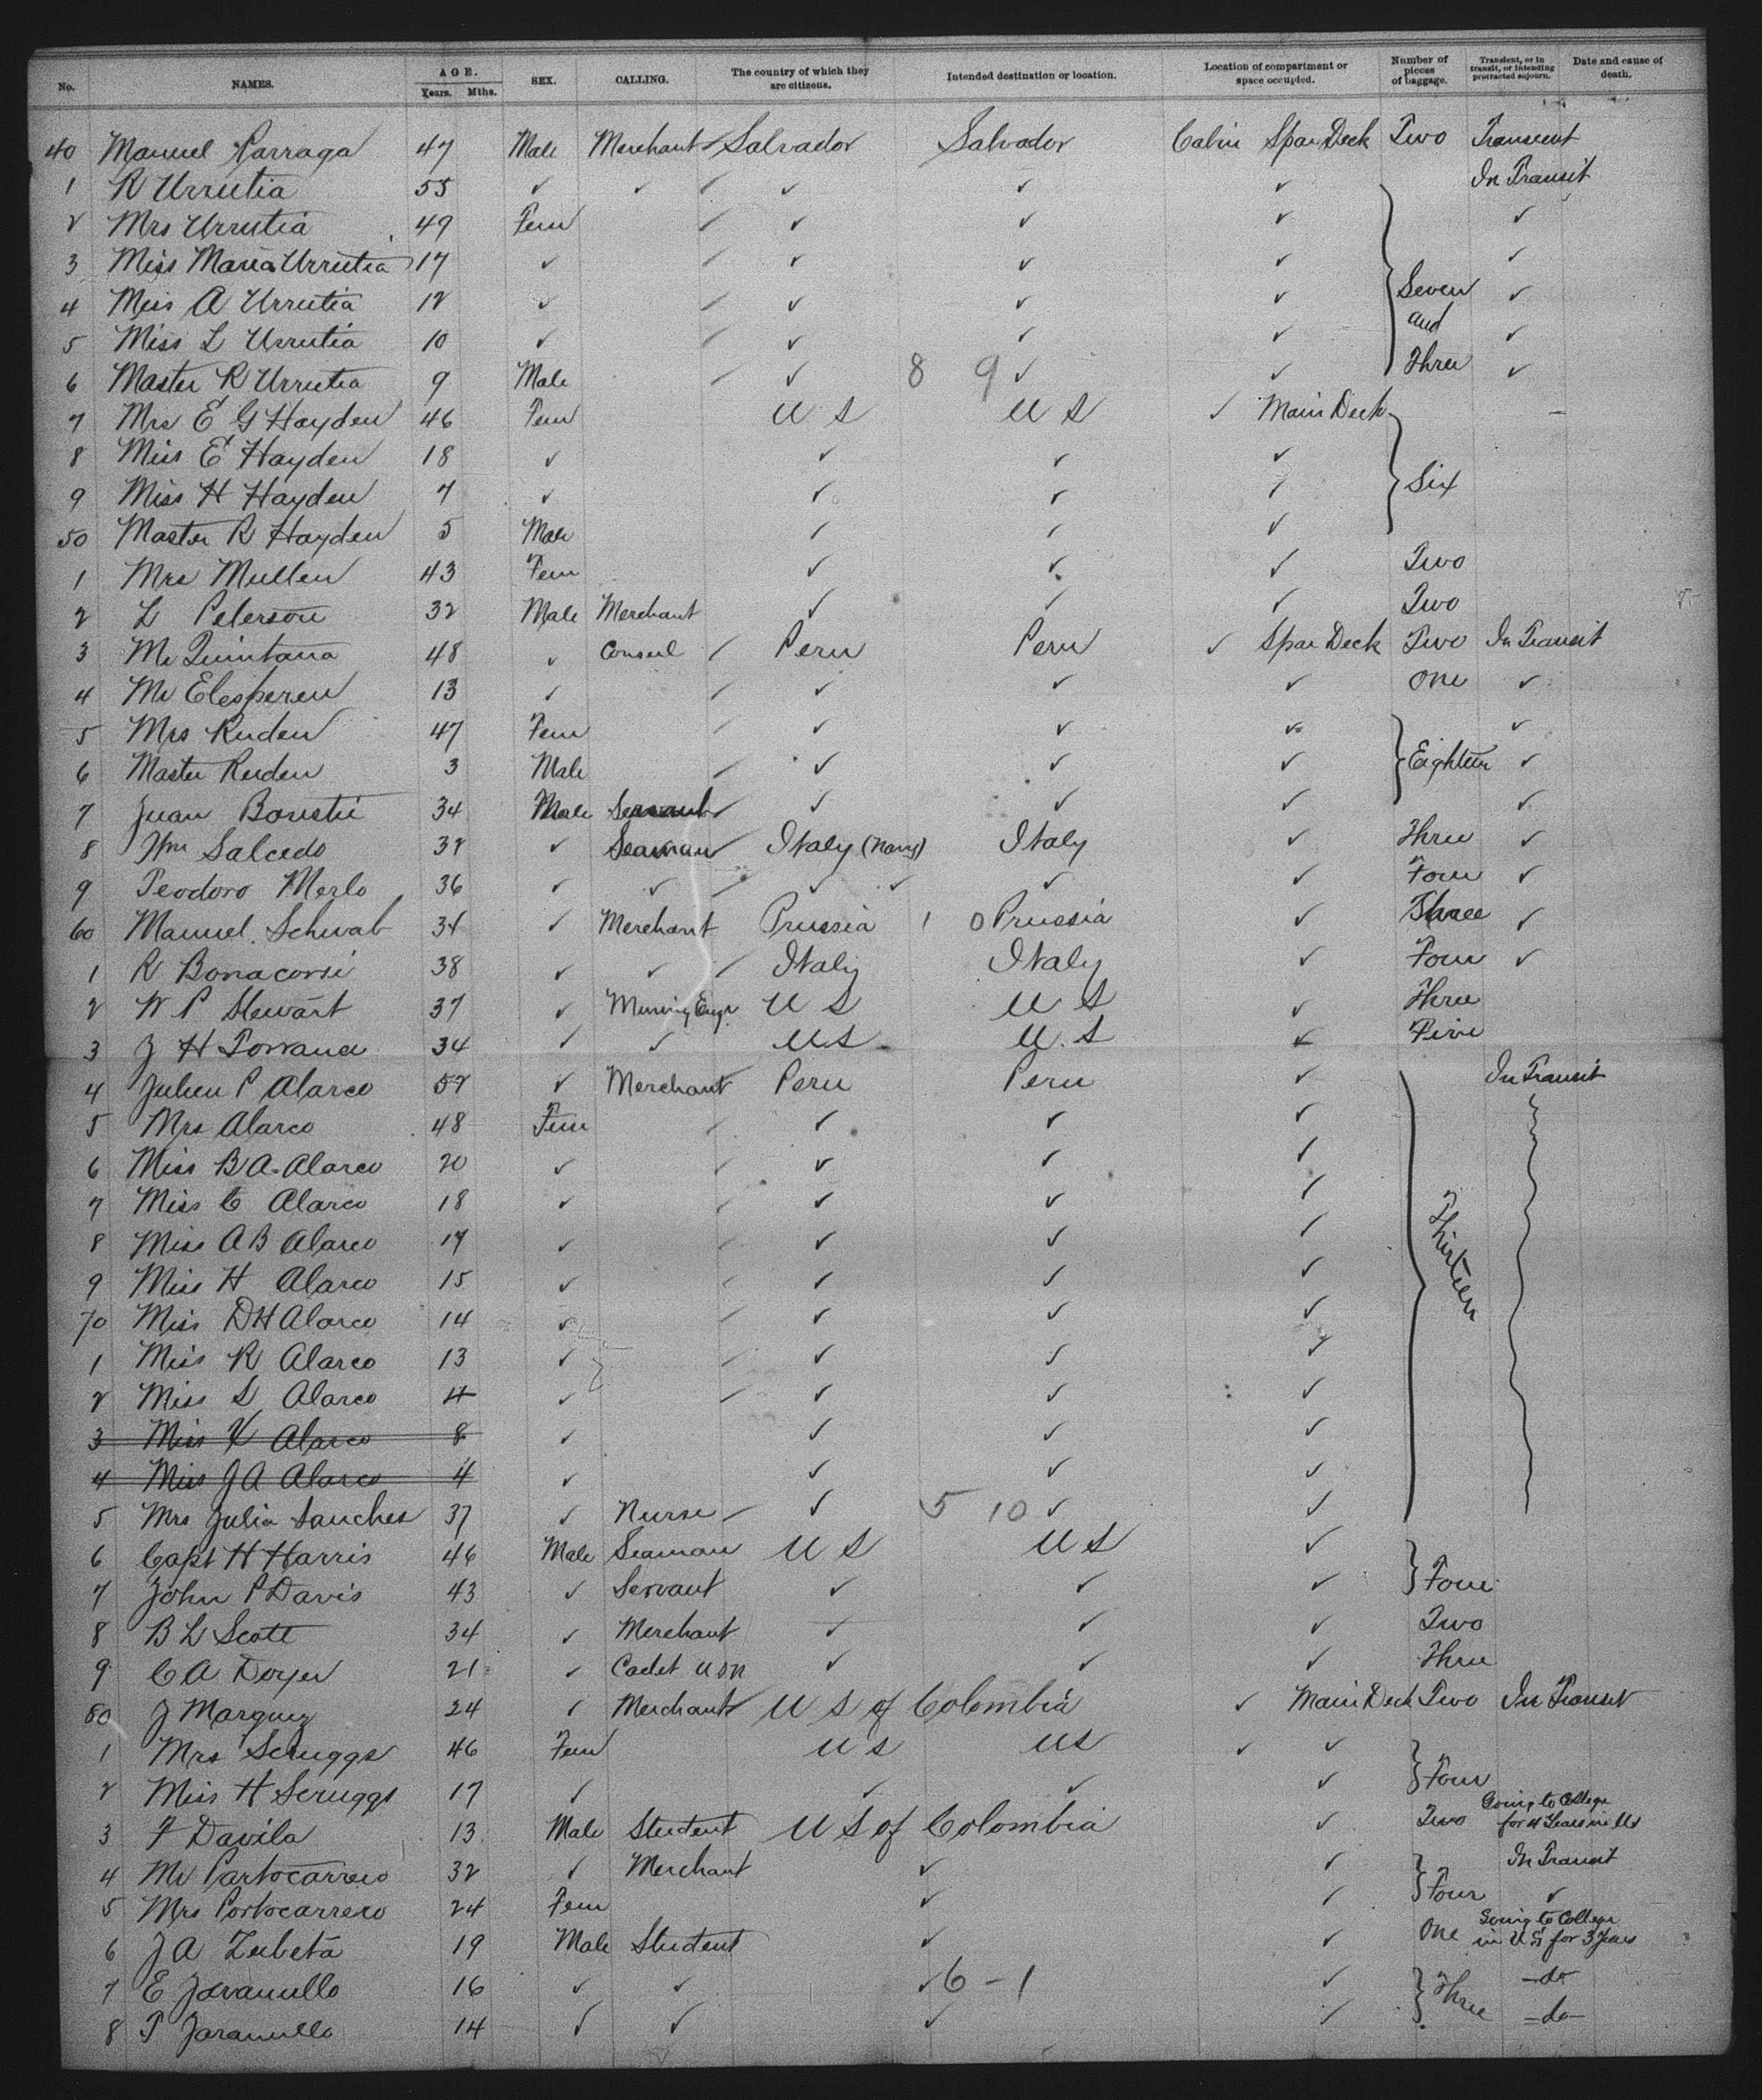 No. NAMES. AGE. Years. Mths. SEX. CALLING. The country of which they are citizens. Intended destination or location. Location of compartment or space occupied. Number of pieces of baggage. Transient, or in transit, or intending protracted sojourn. Date and cause of death.
40 Manuel Parraga 47 Male Merchant Salvador Salvador Cabin Spar Deck Two Transient
1 R Urrutia 55 ✓ ✓ ✓ ✓ ✓ In Transit
2 Mrs Urrutia 49 Fem ✓ ✓ ✓ ✓
3 Miss Maria Urrutia 17 ✓ ✓ ✓ ✓ ✓
4 Miss A Urrutia 12 ✓ ✓ ✓ ✓ Seven ✓
5 Miss L Urrutia 10 ✓ ✓ ✓ ✓ and ✓
6 Master R Urrutia 9 Male ✓ 8 9 ✓ ✓ Three ✓
7 Mrs E G Hayden 46 Fem U S U S ✓ Main Deck
8 Miss E Hayden 18 ✓ ✓ ✓ ✓
9 Miss H Hayden 7 ✓ ✓ ✓ ✓ Six
50 Master R Hayden 5 Male ✓ ✓ ✓
1 Mrs Mullen 43 Fem ✓ ✓ ✓ Two
2 L Peterson 32 Male Merchant ✓ ✓ ✓ Two
3 Mr Quintana 48 ✓ Consul Peru Peru ✓ Spar Deck Two In Transit
4 Mr Elesperen 13 ✓ ✓ ✓ ✓ One ✓
5 Mrs Ruden 47 Fem ✓ ✓ ✓ ✓
6 Master Ruden 3 Male ✓ ✓ ✓ Eighteen ✓
7 Juan 34 Male Servant ✓ ✓ ✓ ✓
8 Wm Salcedo 32 ✓ Seaman Italy (Navy) Italy ✓ Three ✓
9 Teodoro Merlo 36 ✓ ✓ ✓ ✓ ✓ ✓ Four ✓
60 Manuel Schwab 34 ✓ Merchant Prussia 1 0 Prussia ✓ Three ✓
1 R Bonacorsi 38 ✓ ✓ Italy Italy ✓ Four ✓
2 W P Stewart 37 ✓ Mining Engr U S U S ✓ Three
3 J H 34 ✓ ✓ U S U.S ✓ Five
4 Julien P Alarco 52 ✓ Merchant Peru Peru ✓ In Transit
5 Mrs Alarco 48 Fem ✓ ✓ ✓
6 Miss B A Alarco 20 ✓ ✓ ✓ ✓
7 Miss C Alarco 18 ✓ ✓ ✓ ✓
8 Miss A B Alarco 17 ✓ ✓ ✓ ✓
9 Miss H Alarco 15 ✓ ✓ ✓ ✓ Thirteen
70 Miss D H Alarco 14 ✓ ✓ ✓ ✓
1 Miss R Alarco 13 ✓ ✓ ✓ ✓
2 Miss L Alarco ✓ ✓ ✓ ✓
3 Miss Alarco 8 ✓ ✓ ✓ ✓
4 Miss J A Alarco 4 ✓ ✓ ✓ ✓
5 Mrs Julia Sanches 37 ✓ Nurse ✓ 5 10 ✓ ✓
6 Capt H Harris 46 Male Seaman U S U S ✓
7 John P Davis 43 ✓ Servant ✓ ✓ ✓ Four
8 B L Scott 34 ✓ Merchant ✓ ✓ ✓ Two
9 C A Doyen 21 ✓ Cadet USN ✓ ✓ ✓ Three
80 J Marquez 24 ✓ Merchant U S of Colombia ✓ Main Deck Two In Transit
1 Mrs Scruggs 46 Fem U S U S ✓ ✓
2 Miss H Scruggs 17 ✓ ✓ ✓ ✓ Four
3 F Davila 13 Male Student U S of Colombia ✓ Two Going to College for 4 Years in US
4 Mr Portocarrero 32 ✓ Merchant ✓ ✓ In Transit
5 Mrs Portocarrero 24 Fem ✓ ✓ Four ✓
6 J A Zubeta 19 Male Student ✓ ✓ One Going to College in U S for 3 years
7 E Jaramillo 16 ✓ ✓ ✓ 6 - 1 ✓ Three -do-
8 T Jaramillo 14 ✓ ✓ ✓ ✓ -do-